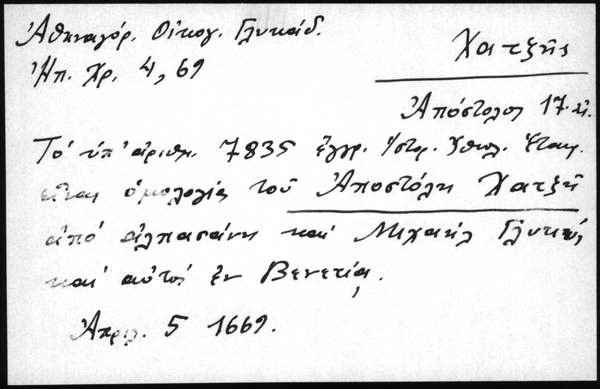 Ἀθηναγόρ. Οἰκογ. Γλυκάδ.
Ἠπ. Χρ. 4, 69
Χατζῆς
Ἀπόστολος 17. αἰ.
Τό ὑπ' ἀριθμ. 7835 ἔγγρ. Ἱστρ.
εἶναι ὁμολογία τοῦ Ἀποστόλη Χατζῆ
ἀπό ἀλπασάνη καί Μιχαήλ Γλυκύ,
καί αὐτός ἐν Βενετίᾳ.
Ἀπριλ. 5 1669.